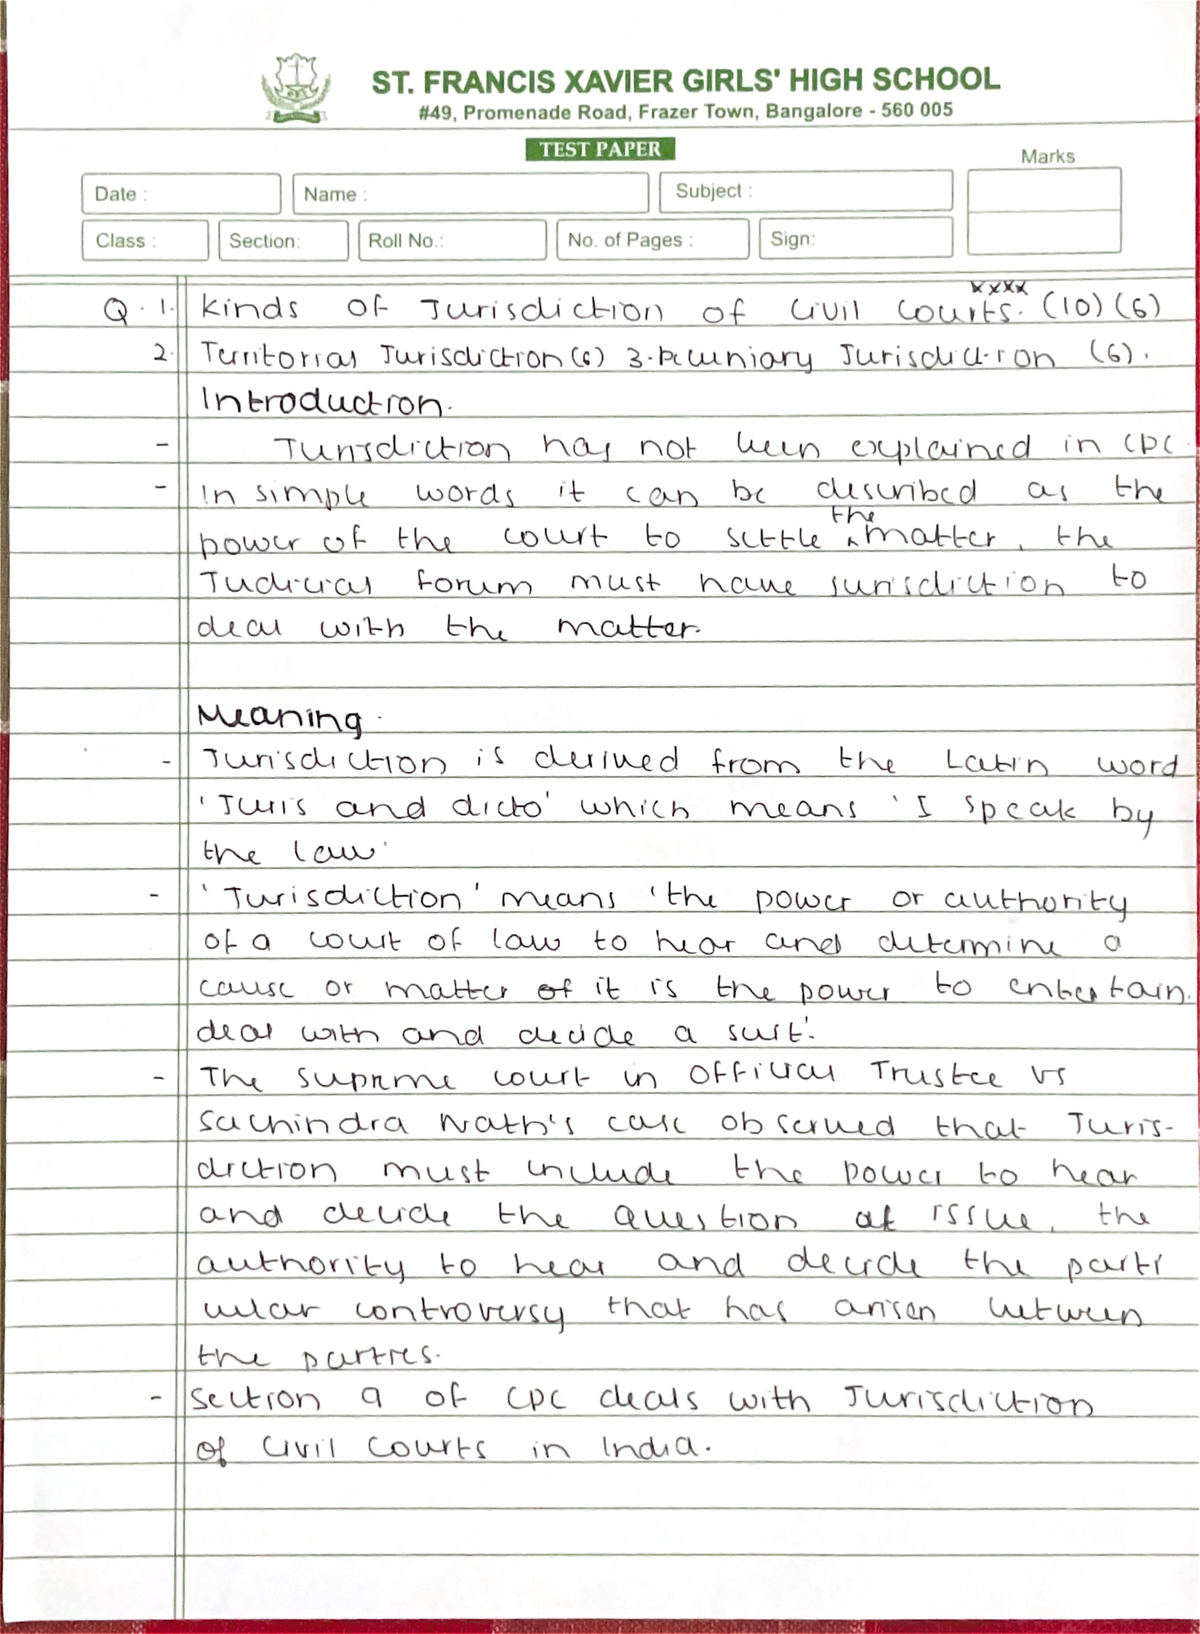 ST. FRANCIS XAVIER GIRLS' HIGH SCHOOL
#49, Promenade Road, Frazer Town, Bangalore - 560 005
TEST PAPER
Marks
Date :
Name :
Subject :
Class :
Section:
Roll No.:
No. of Pages :
Sign:
xxxx
Q. 1. Kinds of Jurisdiction of Civil Courts. (10) (6)
2. Territorial Jurisdiction (6) 3. Pecuniary Jurisdiction (6).
Introduction.
- Jurisdiction has not been explained in CPC.
- In simple words it can be described as the
power of the court to settle the matter, the
Judicial forum must have jurisdiction to
deal with the matter.
Meaning.
- Jurisdiction is derived from the Latin word
'Juris and dicto' which means 'I speak by
the law'
- 'Jurisdiction' means 'the power or authority
of a court of law to hear and determine a
cause or matter of it is the power to entertain.
deal with and decide a suit'.
- The supreme court in Official Trustee vs
Sachindra Nath's case observed that Juris-
diction must include the power to hear
and decide the question at issue, the
authority to hear and decide the parti
cular controversy that has arisen between
the parties.
- Section 9 of CPC deals with Jurisdiction
of Civil Courts in India.